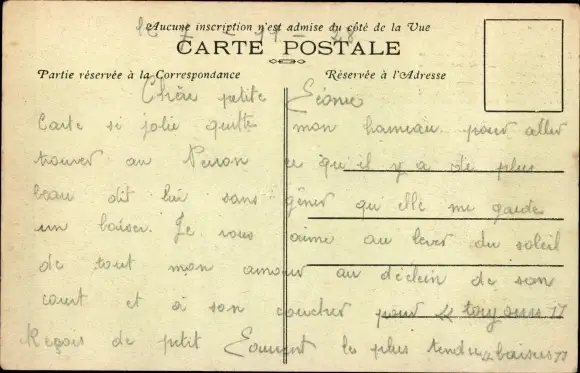 Aucune inscription n'est admise du côté de la Vue
CARTE POSTALE
Partie réservée à la Correspondance
Réservée à l'Adresse
Chère petite Léonie
Carte si jolie quitte mon hameau pour aller
trouver au ce qu'il y a de plus
beau dit lui sans gêner qu'elle me garde
un baiser. Je vous aime au lever du soleil
de tout mon amour au déclein de son
court et à son coucher pour "toujours"
Reçois de petit les plus tendre "baisers"